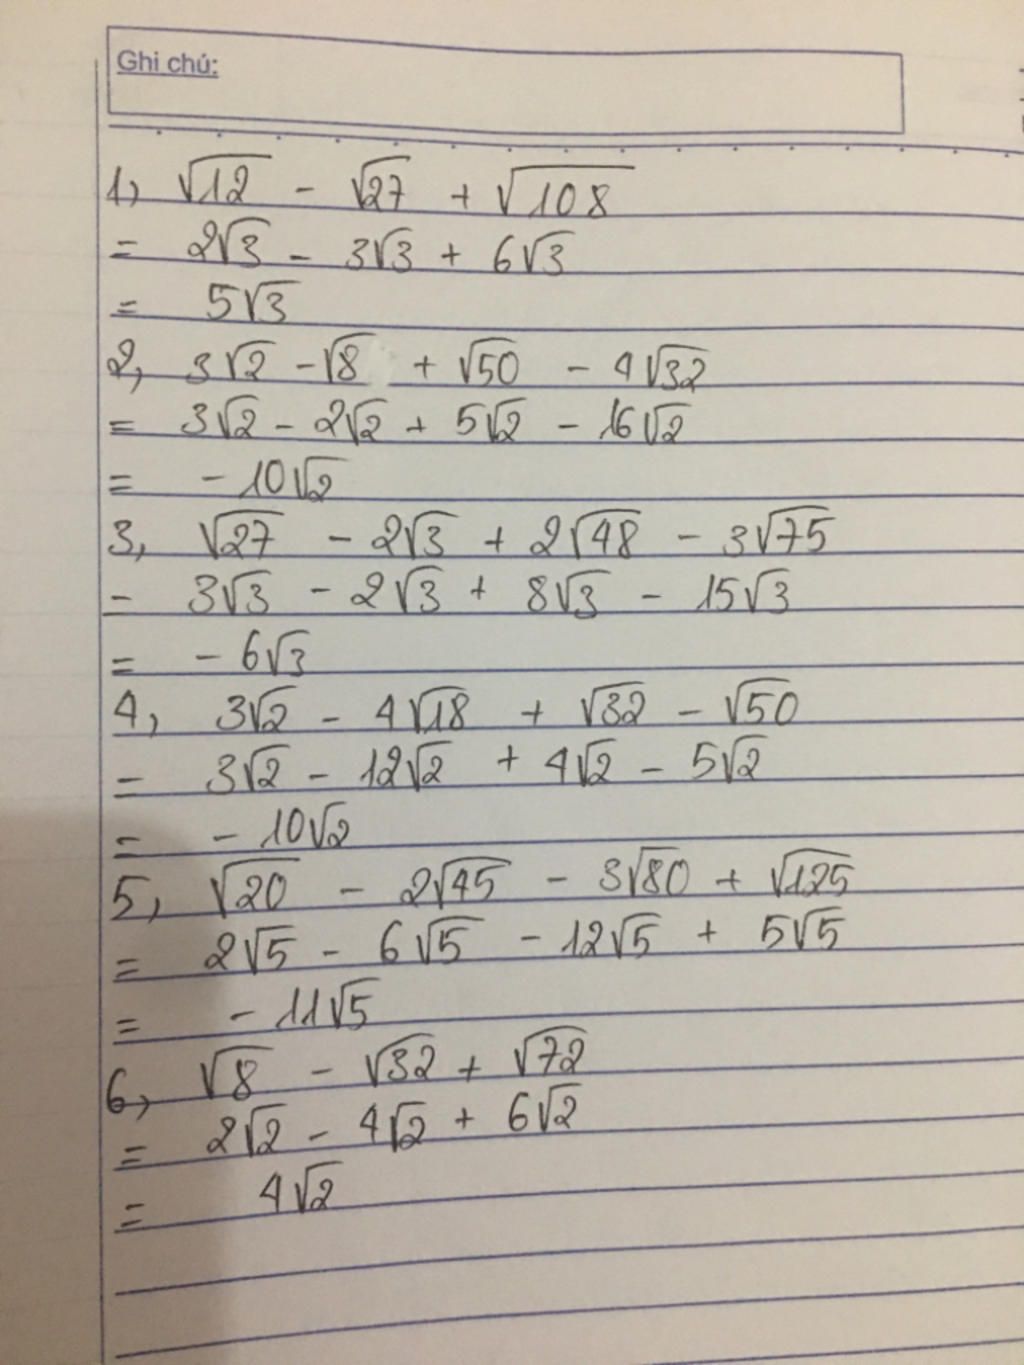 Ghi chú:
1, √12 - √27 + √108
= 2√3 - 3√3 + 6√3
= 5√3
2, 3√2 - √8 + √50 - 4√32
= 3√2 - 2√2 + 5√2 - 16√2
= - 10√2
3, √27 - 2√3 + 2√48 - 3√75
- 3√3 - 2√3 + 8√3 - 15√3
= - 6√3
4, 3√2 - 4√18 + √32 - √50
= 3√2 - 12√2 + 4√2 - 5√2
= - 10√2
5, √20 - 2√45 - 3√80 + √125
= 2√5 - 6√5 - 12√5 + 5√5
= - 11√5
6, √8 - √32 + √72
= 2√2 - 4√2 + 6√2
= 4√2